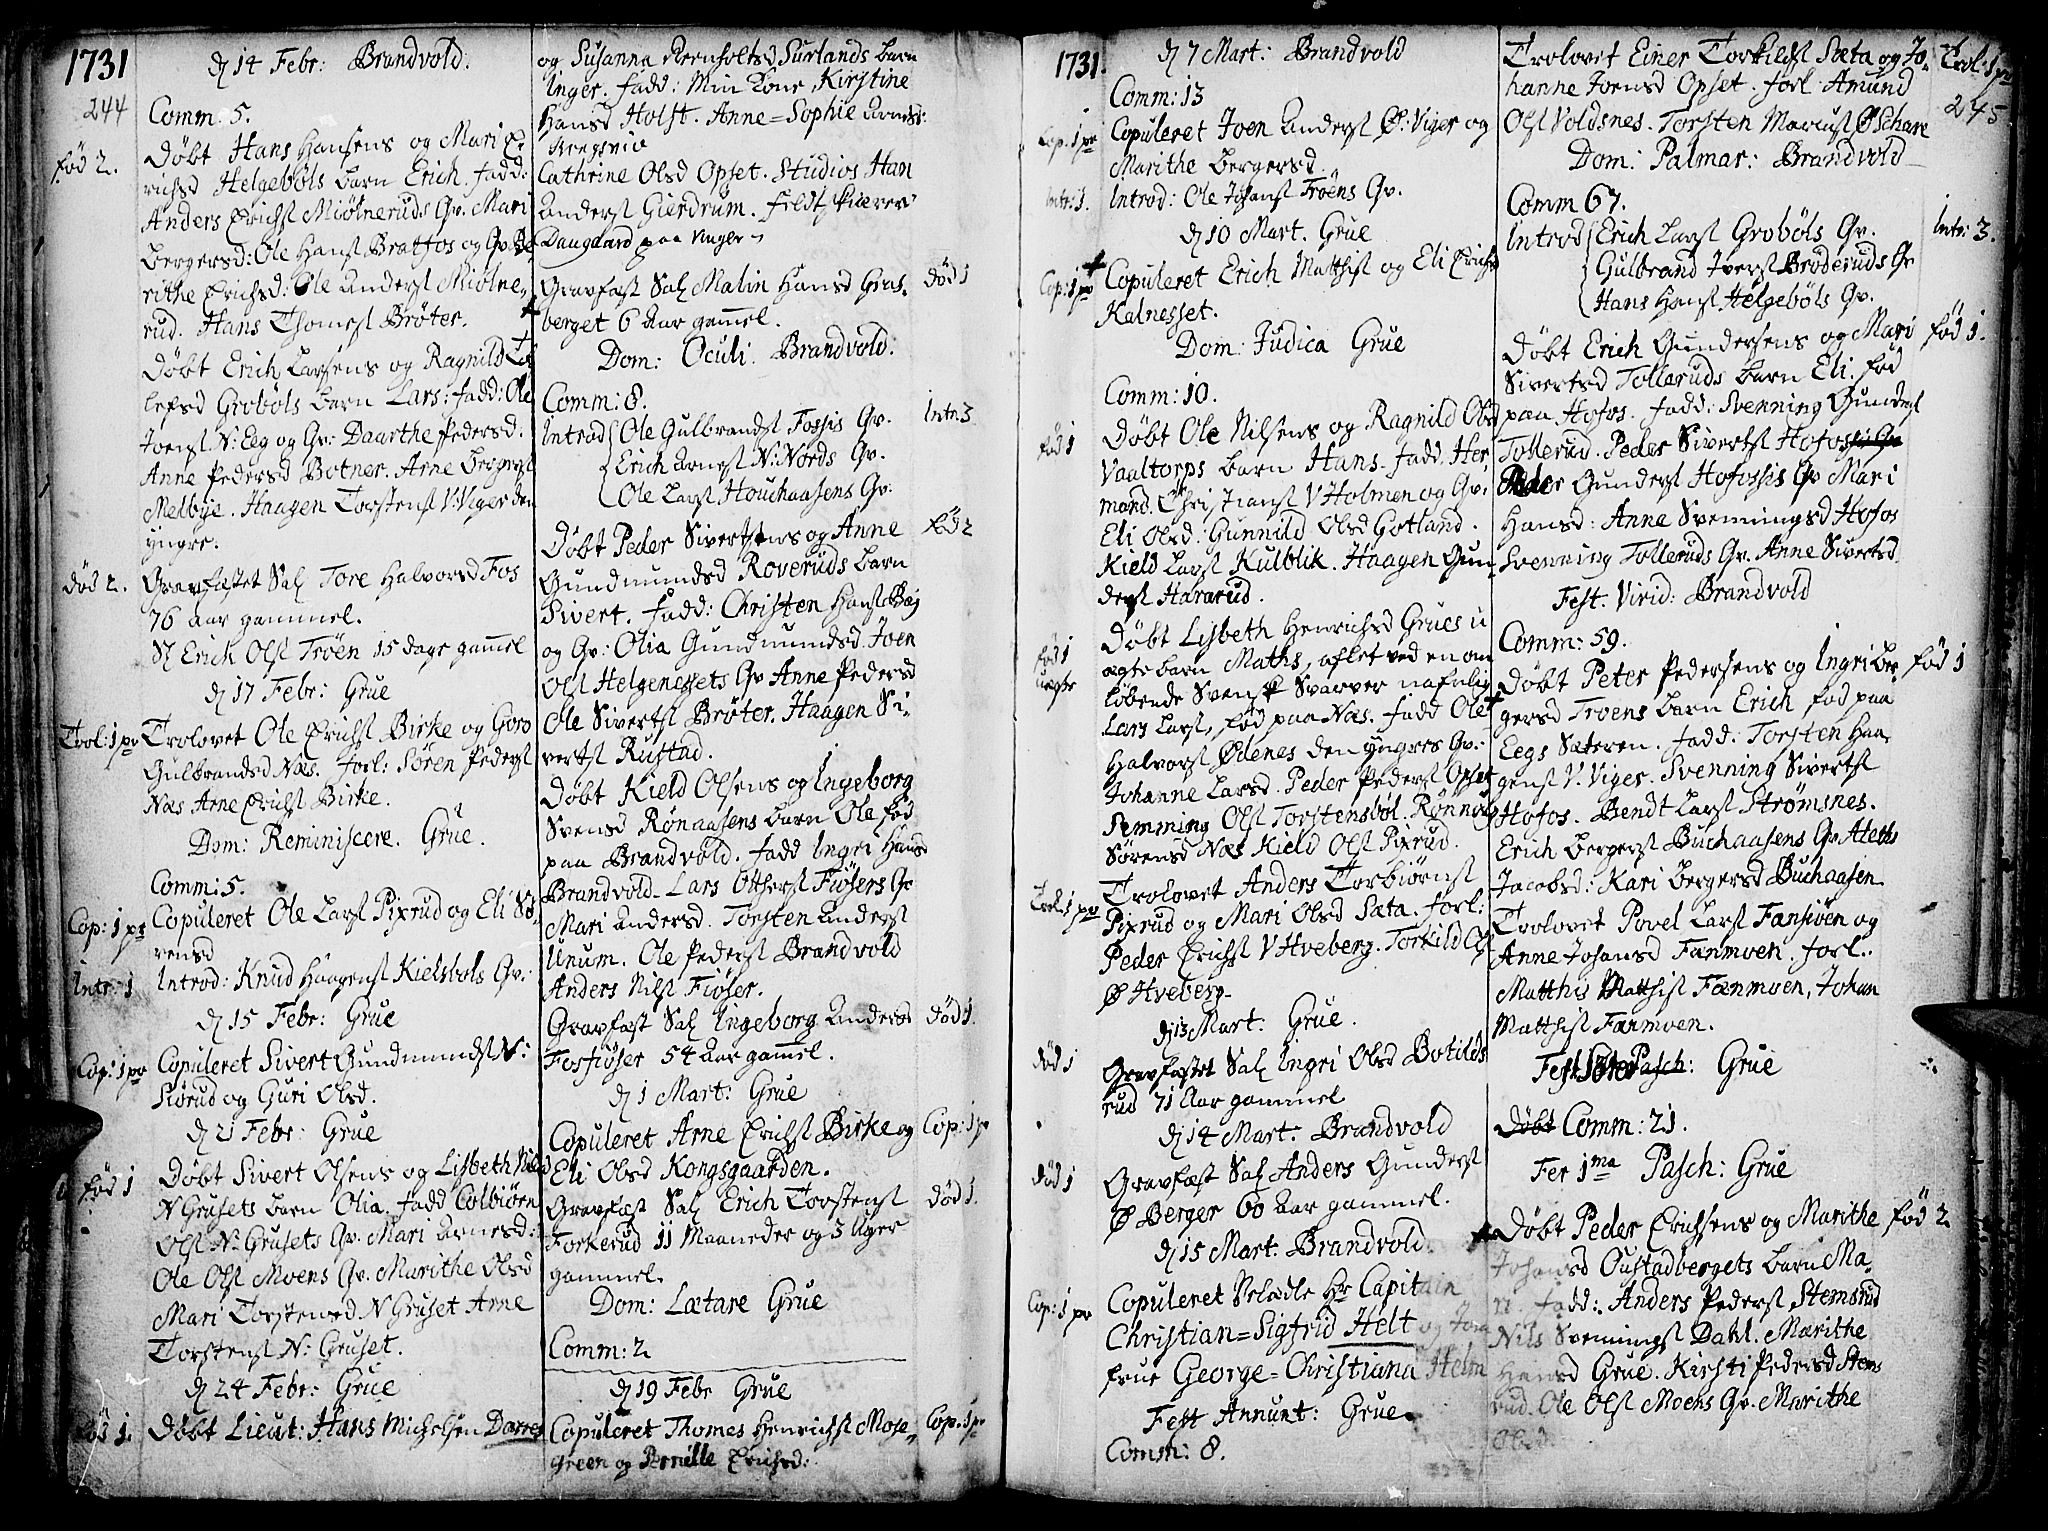 1731
244
d 14 Febr: Brandvold.
Comm: 5.
Død 2.
Døbt Hans Hansens og Mari E
richsd Helgebøls barn Erich. fadd:
Anders Erichs Miølneruds Qv. Mari
Bergersd: Ole Hans Bratfos og Qv.
rithe Erichsd: Ole Anders Miølne,
rud. Hans Thomes Brøter.
Døbt Erich Larsens og Ragnild
lefsd Grobøls barn Lars: fadd: Ole
Joens N: Eeg og Qv: Daarthe Pedersd.
Anne Pedersd Botner. Arne Bergers
Melbye. Haagen Torstens V: Viger den
yngre.
død 2.
Gravfæstet Sal Tore Halvorsd Fos
76 aar gammel.
Sl Erich Ols Trøen 15 dage gamel
d 17 Febr: Grue
Trol: 1 pr
Trolovet Ole Erichs Birke og Goro
Gulbrandsd Næs. Forl: Søren Peders
Næs Arne Erichs Birke.
Dom: Reminiscere. Grue.
Comm: 5.
Cop: 1 pr
Copuleret Ole Lars Pixrud og Eli Sø,
rensd
Intr: 1
Introd: Knud Haagens Kielsbøls Qv:
d 15 Febr: Grue
Cop: 1 pr
Copuleret Sivert Gundmunds N:
Siørud og Guri Olsd.
d 21 Febr: Grue
fød 1
Døbt Sivert Olsens og Lisbeth Nilsd
N Grusets barn Olia. fadd Colbiørn
Ols N: Grusets Qv. Mari Arnesd:
Ole Ols Moens Qv. Marithe Olsd
Mari Torstensd N Gruset Arne
Torstens N: Gruset.
d 24 Febr: Grue
fød 1.
Døbt Lieut: Hans Michelsen Darres
og Susanna Reenholtsd Surlands barn
Inger. fadd: Min Kone Kirstine
Hansd Holst. Anne=Sophie
Cathrine Olsd Opset. Studios Han
Anders Gierdrum.
Daugaard paa
Gravfæst Sal Malin Hansd
død 1
berget 6 Aar gamel.
Dom: Oculi. Brandvold.
Comm: 8.
Introd Ole Gulbrands Fossis Qv.
Intr: 3
Erich Arnes N: Nords Qv.
Ole Lars Houchaasens Qv.
Døbt Peder Sivertsens og Anne
fød 2
Gundmundsd Roveruds barn
Sivert. fadd: Christen Hans
og Qv: Olia Gundmundsd Joen
Ols Helgenessets Qv Anne Pedersd
Ole Siverts Brøter. Haagen Si,
verts Rustad.
Døbt Kield Olsens og Ingeborg
Svensd Rønaasens barn Ole fød
paa Brandvold. fadd Ingri Hansd
Brandvold. Lars Otthers Fiøsers Qv
Mari Andersd. Torsten Anders
Unum. Ole Peders Brandvold
Anders Nils Fiøser.
Gravfæst Sal Ingeborg Andersd
død 1.
Fosfiøser 54 Aar gamel.
d 1 Mart: Grue
Copuleret Arne Erichs Birke og
Cop: 1 pr
Eli Olsd Kongsgaarden.
Gravfæst Sal Erich Torstens
død 1.
Torkerud 11 Maaneder og 3 Uger
gammel.
Dom: Lætare Grue
Comm: 2
d 19 Febr Grue
Copuleret Thomes Henrichs Mose,
Cop. 1 pr
green og Pernille Erichsd:
1731.
d 7 Mart: Brandvold
Comm: 13
Cop. 1 pr
Copuleret Joen Anders Ø: Viger og
Marithe Bergersd
Intr: 1.
Introd: Ole Johans Trøens Qv.
d 10 Mart. Grue
Cop: 1 pr
Copuleret Erich Matthis og Eli Erichs
Kalnesset.
Dom: Judica Grue
Comm: 10.
fød 1
Døbt Ole Nilsens og Ragnild Olsd
Vaaltorps barn Hans. fadd. Her,
mand. Christians V Holmen og Qv:
Eli Olsd: Gunnild Olsd Gotland.
Kield Lars Kulblik. Haagen Gun
ders Hararud.
fød 1
uægte
Døbt Lisbeth Henrichsd Grues u
ægte barn Maths, aflet ved en om
løbende Svensk Svarver nafnlig
Lars Lars, fød paa Næs. fadd Ole
Halvors Ødenes den yngres Qv:
Johanne Larsd. Peder Peders Opset
Semming Ols Torstensbøl. Rønnaug
Sørensd Næs Kield Ols Pixrud.
Trol: 1 pr
Trolovet Anders Torbiørns
Pixrud og Mari Olsd Sæta. Forl:
Peder Erichs V Hveberg. Torkild Ols
Ø Hveberg.
d 13 Mart: Grue.
død 1
Gravfæstet Sal Ingri Olsd Botilds
rud 71 Aar gammel
d 14 Mart: Brandvold
død 1
Gravfæst Sal Anders Gunders
Ø Berger 60 Aar gammel.
d 15 Mart: Brandvold.
Cop: 1 pr
Copuleret Velædle Hr Capitain
Christian=Sigfrid Helt og Jom
frue George=Christiana Helm
Fest Annunt: Grue.
Comm: 8.
Trolovet Einer Torkilds Sæta og Jo,
Trol: 1 pr
hanne Joensd Opset. Forl Amund
245
Ols Voldsnes. Torsten Marcus Ø Skare
Dom: Palmar: Brandvold
Comm 67.
Introd Erich Lars Grobøls Qv.
Intr: 3.
Gulbrand Ivers Brøderuds Qv
Hans Hans Helgebøls Qv.
Døbt Erich Gundersens og Mari
fød 1.
Sivertsd Tolleruds barn Eli. fød
paa Hofos. fadd: Svenning Gunders
Tollerud. Peder Siverts Hofos
Peder Gunders Hofossis Qv Mari
Hansd: Anne Svenningsd Hofos
Svenning Tolleruds Qv. Anne Sivertsd
Fest. Virid: Brandvold
Comm: 59.
Døbt Peter Pedersens og Ingri Ber,
fød 1
gersd Troens barn Erich, fød paa
Eegs Sæteren. fadd: Torsten Haa,
gens V. Viger. Svenning Siverts
Hofos. Bendt Lars Strømsnes.
Erich Bergers Buchaasens Qv. Aleth
Jacobsd: Kari Bergersd Buchaasen
Trolovet Povel Lars Fansiøen og
Anne Johansd Fænmoen. Forl.
Matthis Matthis Fænmoen, Johan
Matthis Fænmoen.
Fest Pasch: Grue
Døbt Comm: 21.
Fer 1ma Pasch: Grue
Døbt Peder Erichsens og Marithe
fød 2
Johansd Oustadbergets barn Ma,
ri. fadd: Anders Peders Stemsrud
Nils Svennings Dahl. Marithe
Hansd Grue. Kirsti Pedersd Stems
rud. Ole Ols Moens Qv. Marithe
Olsd.